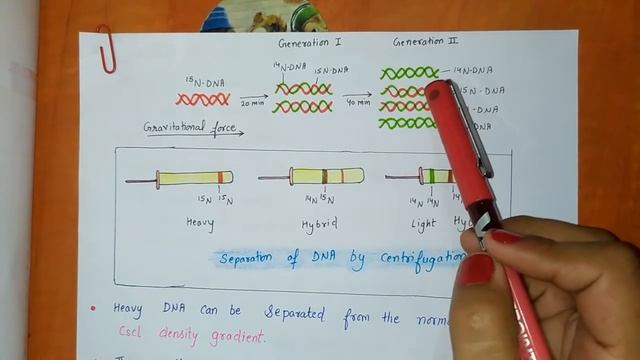 Generation I Generation II
¹⁵N-DNA ¹⁴N-DNA ¹⁵N-DNA ¹⁴N-DNA
20 min 40 min ¹⁵N-DNA
DNA
DNA
Gravitational force
¹⁵N ¹⁵N ¹⁴N ¹⁵N ¹⁴N ¹⁴N ¹⁴N
Heavy Hybrid Light Hy
Separation of DNA by Centrifugation
• Heavy DNA can be Separated from the norm
Cscl density gradient.